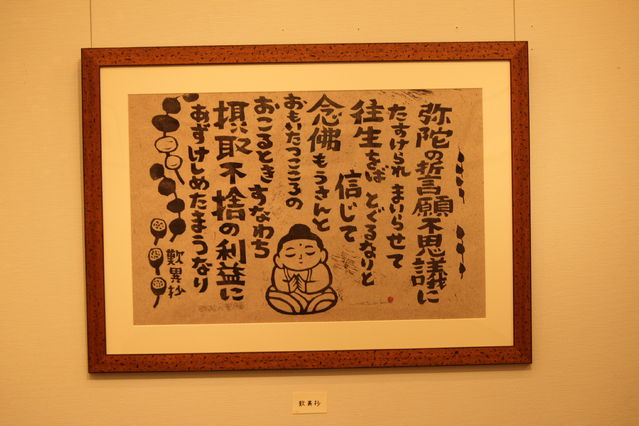 弥陀の誓願不思議に
たすけられまいらせて
往生をば とぐるなりと
信じて
念佛もうさんと
おもいたつこころの
おこるとき すなわち
摂取不捨の利益に
あずけしめたまうなり
歎異抄
歎異抄